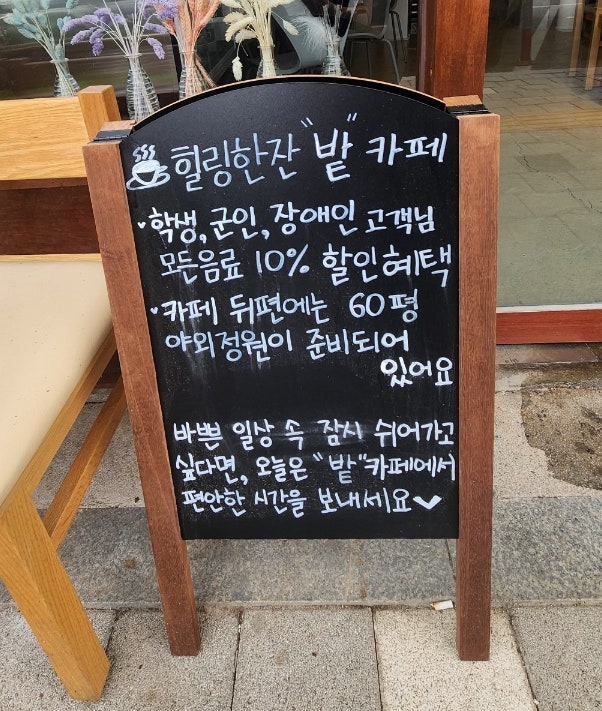 힐링한잔 "밭" 카페
학생, 군인, 장애인 고객님
모든음료 10% 할인혜택
카페 뒤편에는 60평
야외정원이 준비되어
있어요
바쁜 일상 속 잠시 쉬어가고
싶다면, 오늘은 "밭"카페에서
편안한 시간을 보내세요